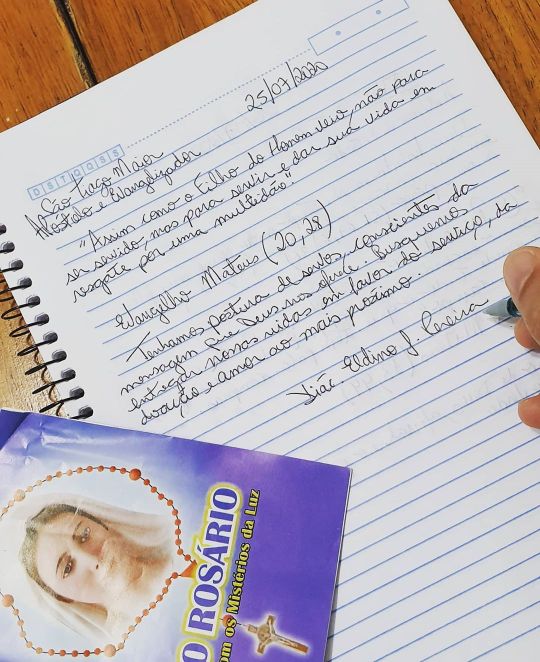 25/07/2020
DSTQQSS
São Tiago Maior
Apóstolo e Evangelizador
"Assim como o Filho do Homem veio, não para
ser servido, mas para servir e dar sua vida em
resgate por uma multidão".
Evangelho Mateus (20,28)
Tenhamos postura de servos, conscientes da
mensagem que Deus nos oferece. Busquemos
entregar nossas vidas em favor do serviço, da
doação e amor ao mais próximo.
Diác. Eldino J. Pereira
O ROSÁRIO
om os Mistérios da Luz